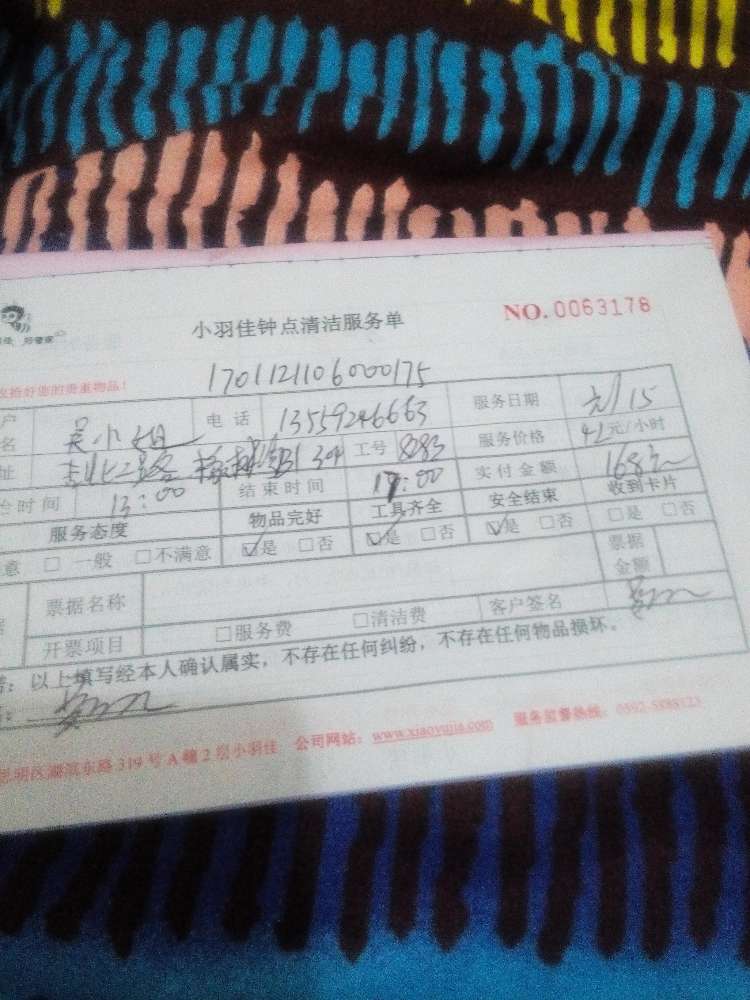 小羽佳钟点清洁服务单 NO.0063178
收拾好您的贵重物品！ 1701121106000175
户名 吴小姐 电话 13559246663 服务日期 15
址 工号 服务价格 42元/小时
台时间 13:00 结束时间 17:00 实付金额 168元
服务态度 物品完好 工具齐全 安全结束 收到卡片
意 □一般 □不满意 ☑是 □否 ☑是 □否 ☑是 □否 □是 □否
票据名称 票据金额
据 开票项目 □服务费 □清洁费 客户签名
以上填写经本人确认属实，不存在任何纠纷，不存在任何物品损坏。
思明区湖滨东路319号A幢2层小羽佳 公司网站：www.xiaoyujia.com 服务监督热线：0592-5888123